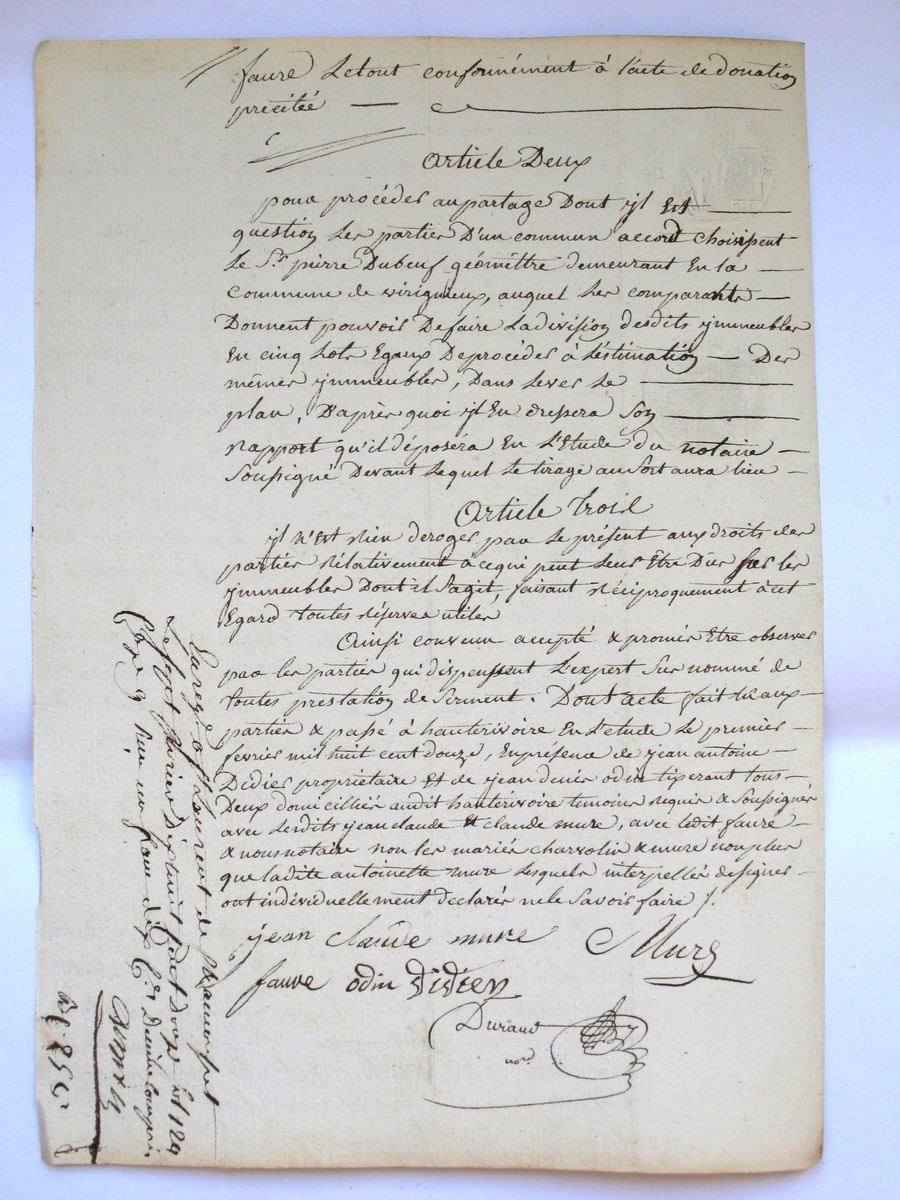 faure Letout conformément à l'acte de donation
précitée
Article Deux
pour procéder au partage Dont yl Est
question Les parties D'un commun accord choisissent
Le Sr. pierre Dubeuf géomêttre demeurant En la
Commune de virignieux, auquel Les comparants
Donnent pouvoir De faire La division desdits ymmeubles
En cinq Lots Egaux De procéder à L'estimation Des
mêmes ymmeubles, Dans Lever Le
plan, D'après quoi yl En dressera Son
rapport qu'il déposéra En L'Etude du notaire
Soussigné Devant Lequel Le tirage au Sort aura lieu
Article Trois
yl n'Est rien deroger par Le présent aux droits des
parties rélativement à cequi peut Leur Etre Du sur les
ymmeubles Dont il S'agit, faisant réciproquement à cet
Egard toutes réserves utiles
Ainsi convenu accepté & promis Etre observer
par les parties qui dispensent L'expert Sus nommé de
toutes prestation de Serment. Dont acte fait Lu aux
parties & passé à hauterivoire En L'etude Le premier
fevrier mil huit cent douze, En présence de jean antoine
Didier propriétaire Et de jean denis odin tixerant tous
Deux domicilliés audit hauterivoire temoins requis & Soussignés
avec Lesdits jean claude Et claude mure, avec Ledit faure
& nous notaire non les mariés charvolin & mure non plus
que ladite antoinette mure Lesquels interpellés de signer
ont individuellement declarés ne le Savoir faire /.
jean claude mure
C Mure
faure odin didier
Durand
nore.
Enregtré à St Laurent de Chamousset
Le Sept fevrier dix huit Cent Douze fol 129